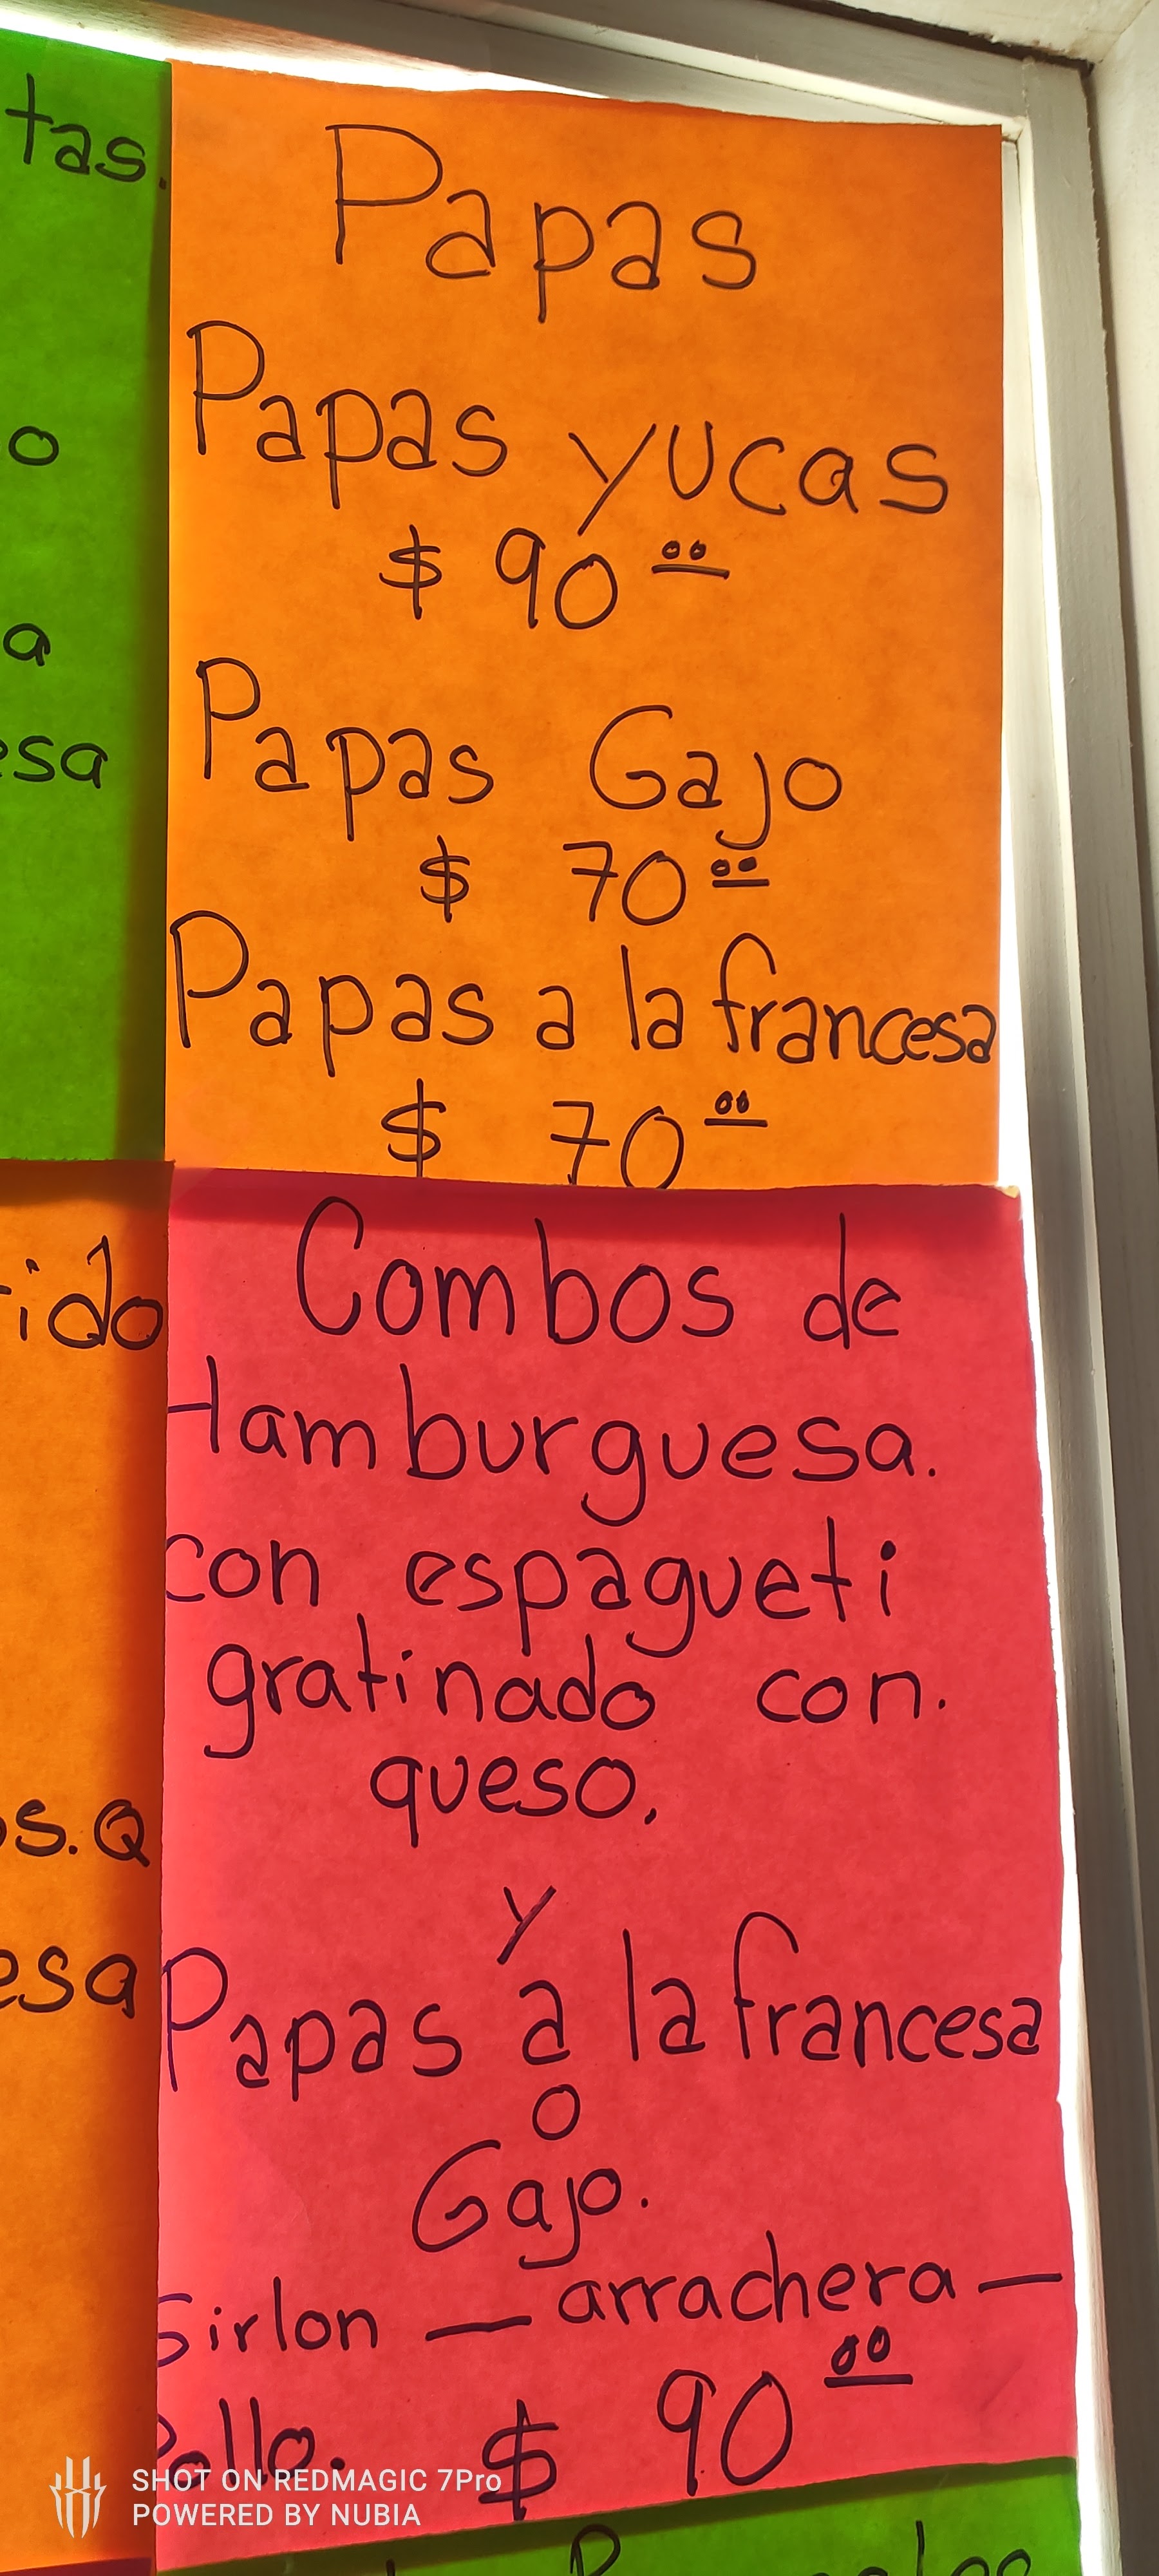 tas.
o
a
esa
Papas
Papas yucas
$ 90 00
Papas Gajo
$ 70 00
Papas a la francesa
$ 70 00
ido
s.Q
esa
Combos de
Hamburguesa.
con espagueti
gratinado con.
queso.
y
Papas a la francesa
o
Gajo.
Sirlon — arrachera —
Pollo. $ 90 00
SHOT ON REDMAGIC 7Pro
POWERED BY NUBIA